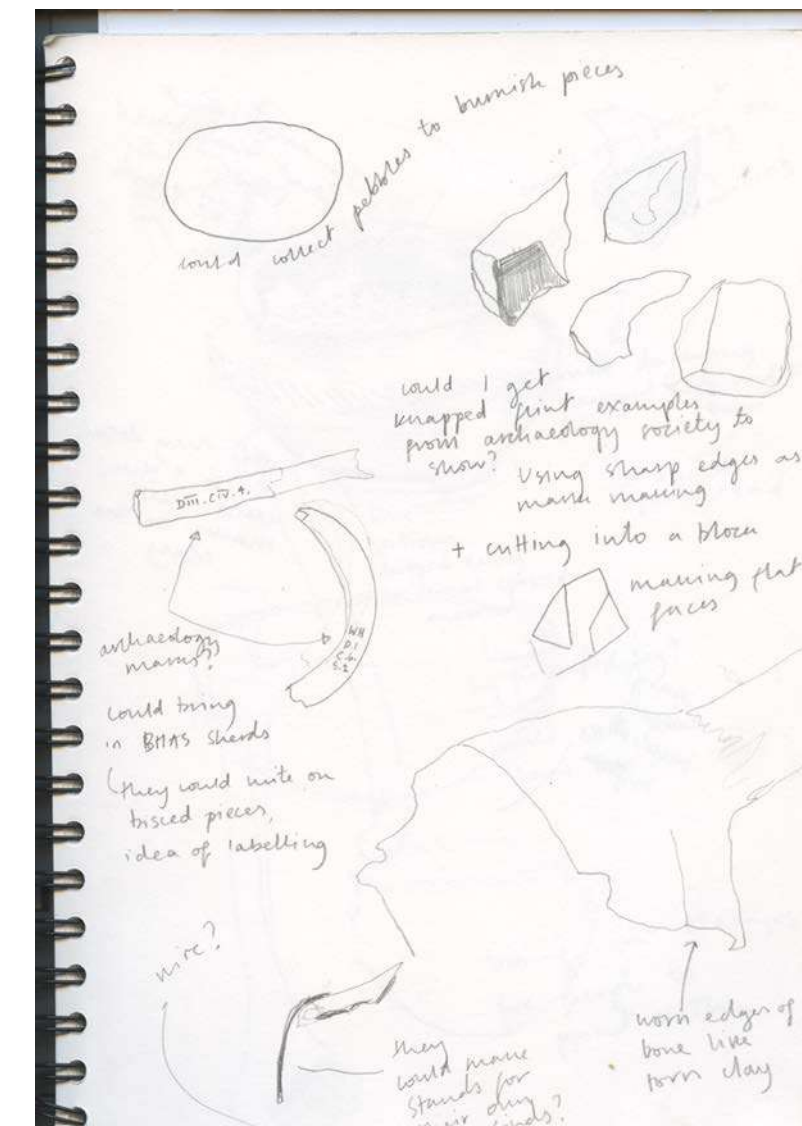 could collect pebbles to burnish pieces
could I get
knapped flint examples
from archaeology society to
show?
Using sharp edges as
mark making
+ cutting into a block
making flat
faces
DIII.CIV.4.
WH
D.1
S.2
archaeology
marks?
could bring
in BHAS sherds
(they could write on
bisced pieces,
idea of labelling
wire?
they
could make
stands for
their
worn edges of
bone like
torn clay